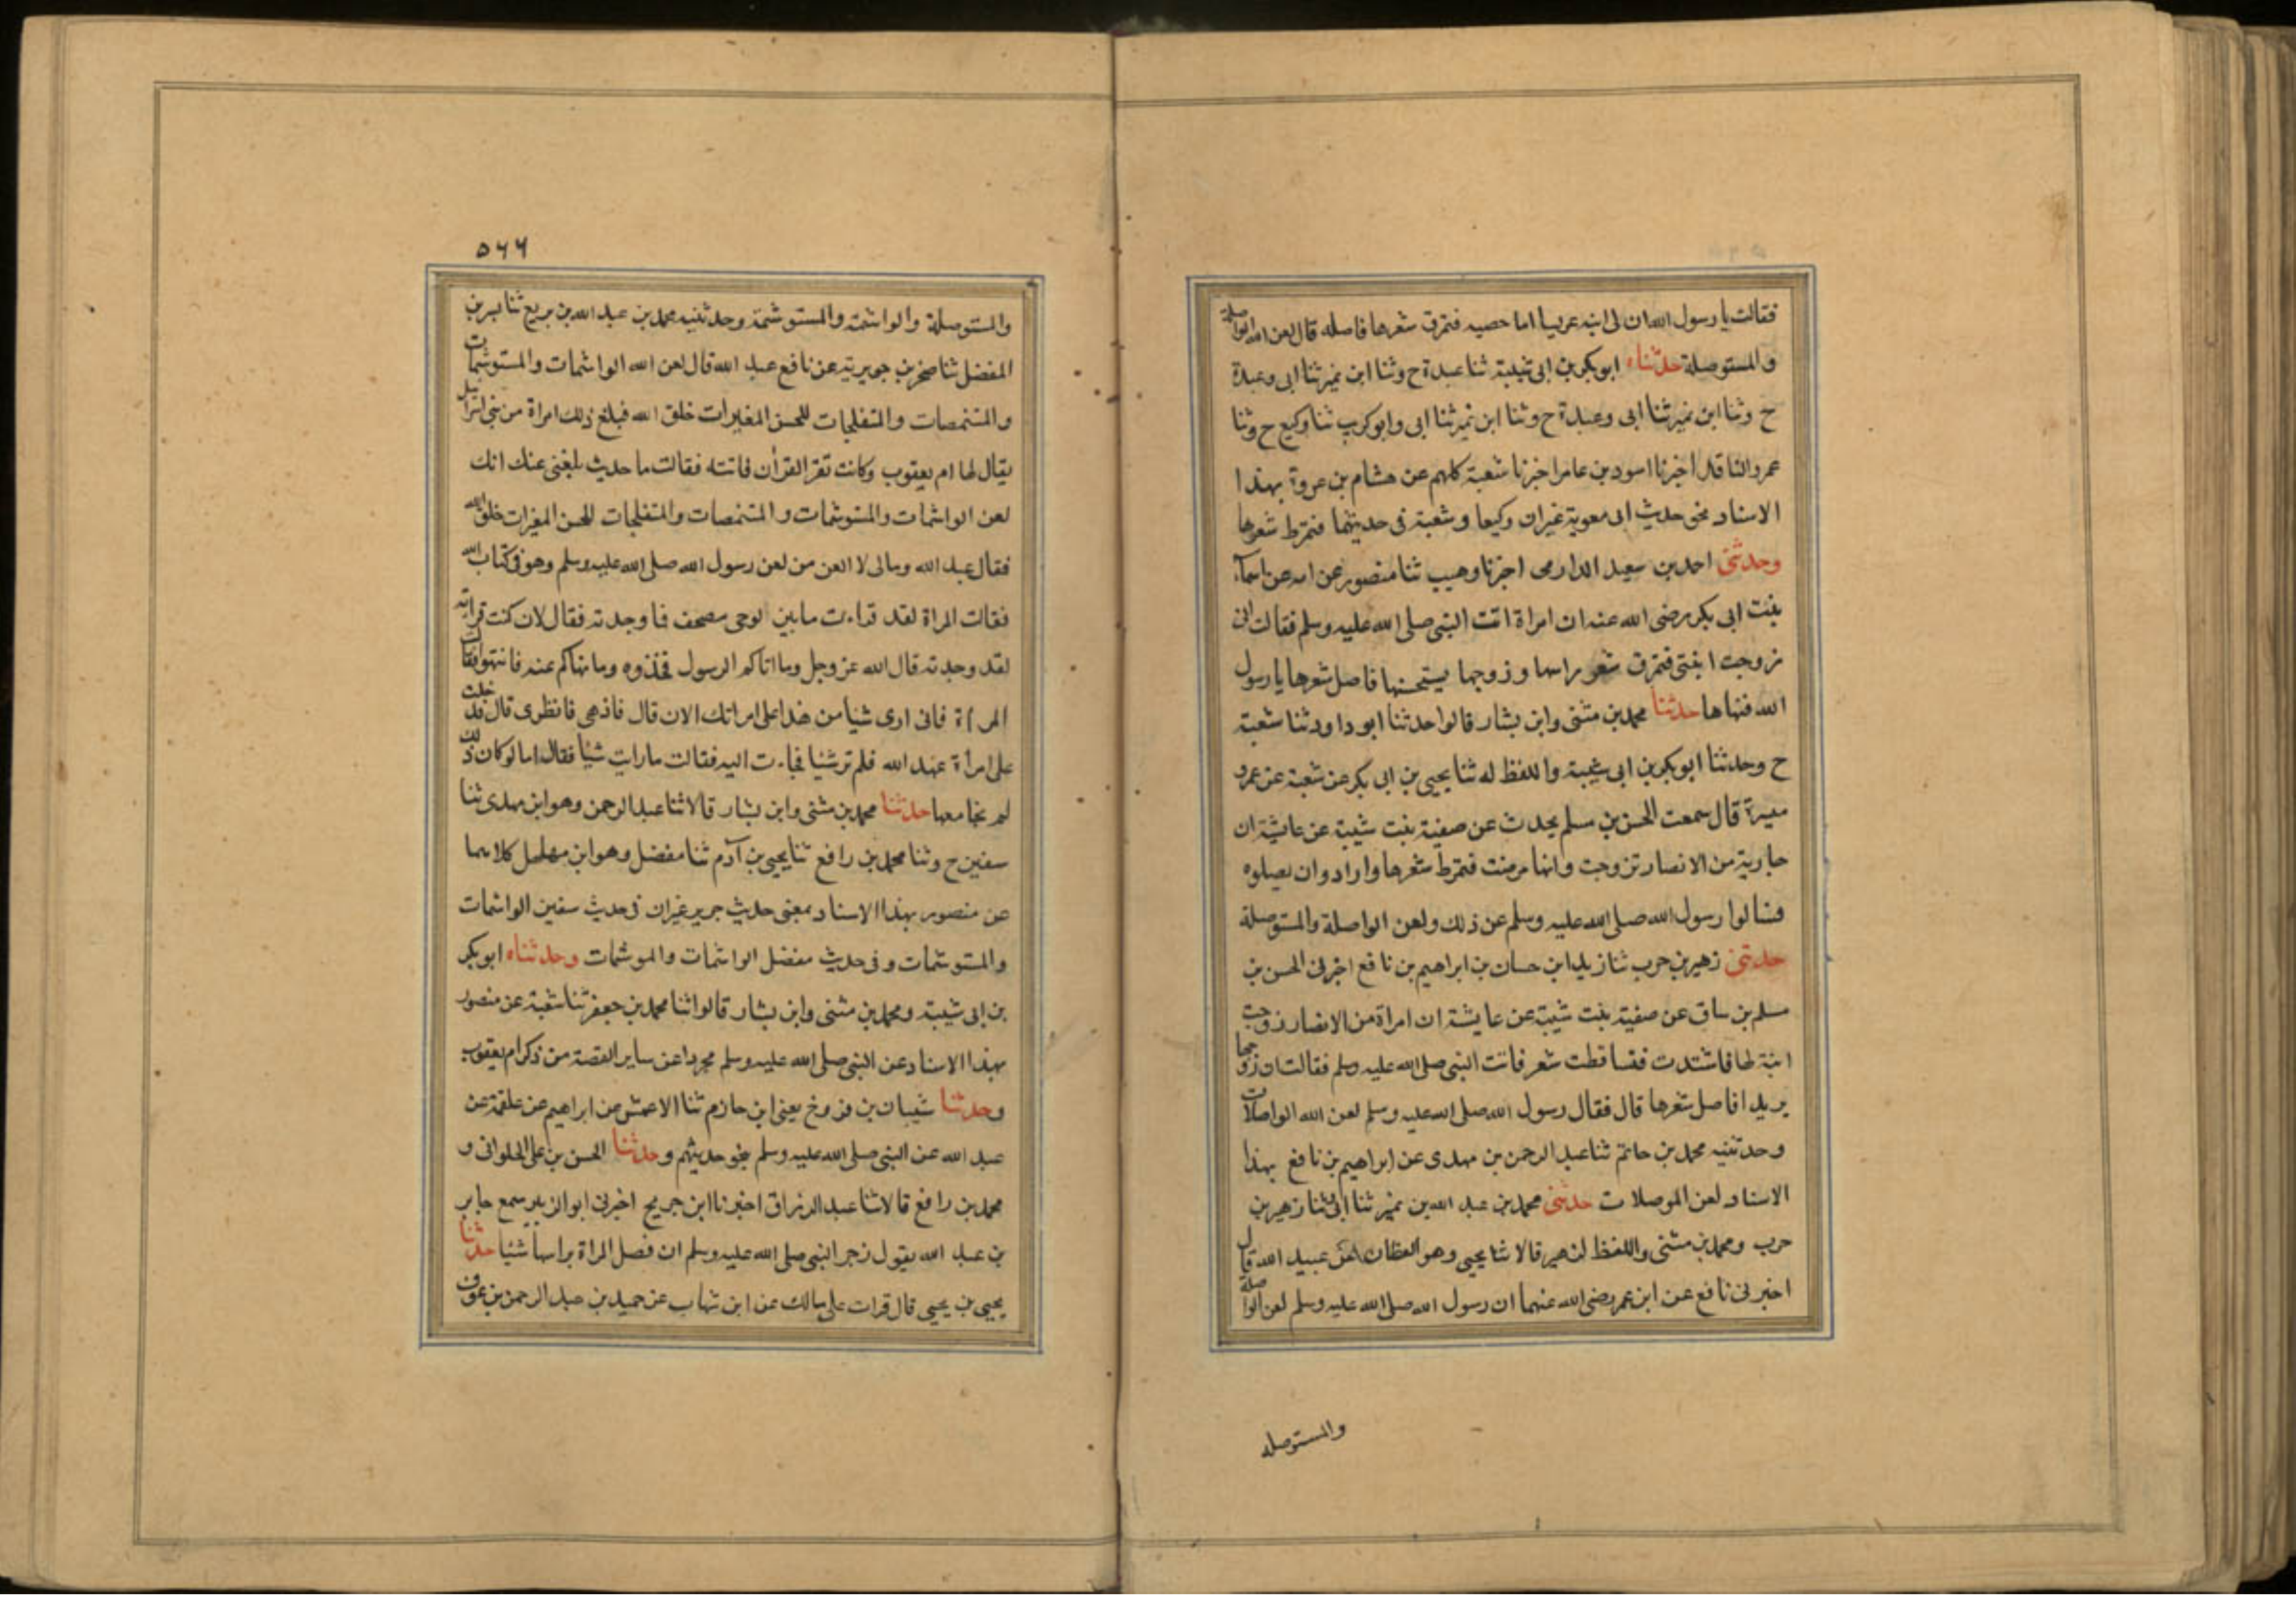 فقالت يا رسول الله ان لى ابنه عريسا اصابها حصبه فتمرق شعرها فاصله قال لعن الله الواصلة
والمستوصلة حدثناه ابو بكر بن ابى شيبة ثنا عبدة ح وثنا ابن نمير ثنا ابى وعبدة
ح وثنا ابن نمير ثنا ابى وعبدة ح وثنا ابن نمير ثنا ابى وابو كريب ثنا وكيع ح وثنا
عمرو الناقد اخبرنا اسود بن عامر اخبرنا شعبة كلهم عن هشام بن عروة بهذا
الاسناد نحو حديث ابى معوية غير ان وكيعا وشعبة فى حديثهما فتمرط شعرها
وحدثنى احمد بن سعيد الدارمى اخبرنا وهيب ثنا منصور عن امه عن اسمآء
بنت ابى بكر رضى الله عنه ان امراة اتت النبى صلى الله عليه وسلم فقالت انى
زوجت ابنتى فتمرق شعر راسها وزوجها يستحسنها فاصل شعرها يا رسول
الله فنهاها حدثنا محمد بن مثنى وابن بشار قالوا حدثنا ابو داود ثنا شعبة
ح وحدثنا ابو بكر بن ابى شيبة واللفظ له ثنا يحيى بن ابى بكر عن شعبة عن عمرو
ميسرة قال سمعت الحسن بن مسلم يحدث عن صفية بنت شيبة عن عايشة ان
جارية من الانصار تزوجت وانها مرضت فتمرط شعرها وارادوان يصلوه
فسالوا رسول الله صلى الله عليه وسلم عن ذلك ولعن الواصلة والمستوصلة
حدثنى زهير بن حرب ثنا زيد ابن حسان بن ابراهيم بن نافع اخبرنى الحسن بن
مسلم بن ساق عن صفية بنت شيبة عن عايشة ان امراة من الانصار زوجت
ابنة لها فاشتدت فتساقطت شعر فاتت النبى صلى الله عليه وسلم فقالت ان زوجها
يريدا فاصل شعرها قال فقال رسول الله صلى الله عليه وسلم لعن الله الواصلات
وحدثنيه محمد بن حاتم ثنا عبد الرحمن بن مهدى عن ابراهيم بن نافع بهذا
الاسناد لعن الموصلات حدثنى محمد بن عبد الله بن نمير ثنا ابى ثنا زهير بن
حرب ومحمد بن مثنى واللفظ لزهير قالا ثنا يحيى وهو القطان عن عبيد الله قال
اخبرنى نافع عن ابن عمر رضى الله عنهما ان رسول الله صلى الله عليه وسلم لعن الواصلة
والمستوصله
٥٦٦
والمستوصلة والواشمة والمستوشمة وحدثنيه محمد بن عبد الله بن بريع ثنا بسر بن
المفضل ثنا صخر بن جويرية عن نافع عبد الله قال لعن الله الواشمات والمستوشمات
والمتنمصات والمتفلجات للحسن المغيرات خلق الله فبلغ ذلك امراة من بنى
يقال لها ام يعقوب وكانت تقرا القرأن فاتته فقالت ما حديث بلغنى عنك انك
لعن الواشمات والمستوشمات والمتنمصات والمتفلجات للحسن المغيرات خلق الله
فقال عبد الله ومالى لا العن من لعن رسول الله صلى الله عليه وسلم وهو فى كتاب الله
فقالت المراة لقد قراءت ما بين لوحى مصحف فما وجدته فقال لان كنت قراته
لقد وجدته قال الله عز وجل وما اتاكم الرسول فخذوه وما نهاكم عنه فانتهوا فقالت
المرأة فانى ارى شيا من هذا على امراتك الان قال فاذهبى فانظرى قال فدخلت
على امرأة عبد الله فلم تر شيا فجاءت اليه فقالت ما رايت شيا فقال اما لو كان ذلك
لم نجامعها حدثنا محمد بن مثنى وابن بشار قالا ثنا عبد الرحمن وهو ابن مهدى ثنا
سفين ح وثنا محمد بن رافع ثنا يحيى بن آدم ثنا مفضل وهو ابن مهلهل كلاهما
عن منصور بهذا الاسناد بمعنى حديث جرير غير ان فى حديث سفين الواشمات
والمستوشمات وفى حديث مفضل الواشمات والموشمات وحدثناه ابو بكر
بن ابى شيبة ومحمد بن مثنى وابن بشار قالوا ثنا محمد بن جعفر ثنا شعبة عن منصور
بهذا الاسناد عن النبى صلى الله عليه وسلم مجردا عن ساير القصة من ذكر ام يعقوب
وحدثنا شيبان بن فروخ يعنى ابن حازم ثنا الاعمش عن ابراهيم عن علقمة عن
عبد الله عن النبى صلى الله عليه وسلم نحو حديثهم وحدثنا الحسن بن على الحلوانى و
محمد بن رافع قالا ثنا عبد الرزاق اخبرنا ابن جريج اخبرنى ابو الزبير سمع جابر
بن عبد الله يقول زجر النبى صلى الله عليه وسلم ان فصل المراة براسها شيا حدثنا
يحيى بن يحيى قال قرات على مالك عن ابن شهاب عن حميد بن عبد الرحمن بن عوف